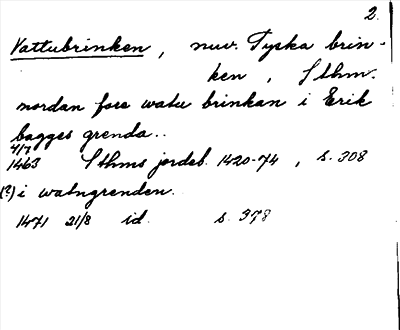 2.
Vattubrinken, nuv. Tyska brin-
ken, Sthm.
nordan fore watu brinkan i Erik
bagges grenda..
4/7
1463 Sthms jordeb. 1420-74, s. 308
(?) i watngrenden.
1471 21/8 id. s. 378